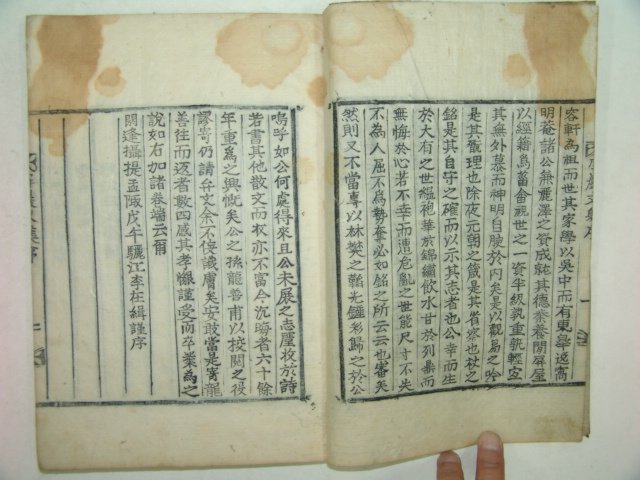 容軒為祖而世其家學以吳中而有東學逸窩
明菴諸公兼麗澤之資成就其德業養閒屏屋
以經籍為菑畬視世之一資半級孰重孰輕宜
其無外慕而神明自腴於內矣是以觀易之吟
是其翫理也除夜元朝之箴是其省察也杖之
銘是其自字之確而以示其志者也公幸而生
於大有之世縕袍華於錦繡飲水甘於列鼎而
無悔於心若不幸而遭危亂之世能尺寸不失
不為人屈不為勢奪必如銘之所云云也審矣
然則又不當專以林樊之韜光鏟彩歸之於公
嗚乎如公何處得來且公未展之志壓於詩
若書其他散文而叔亦不富今沉晦者六十餘
年重為之興慨矣公之孫龍善甫以校閱之役
謬寄仍請弁文余不侫識膚矣安敢當是寄龍
善往而返者數四感其孝懃謹受而卒業為之
說如右加諸卷端云爾
閼逢攝提孟陬戊午驪江李在緝謹序